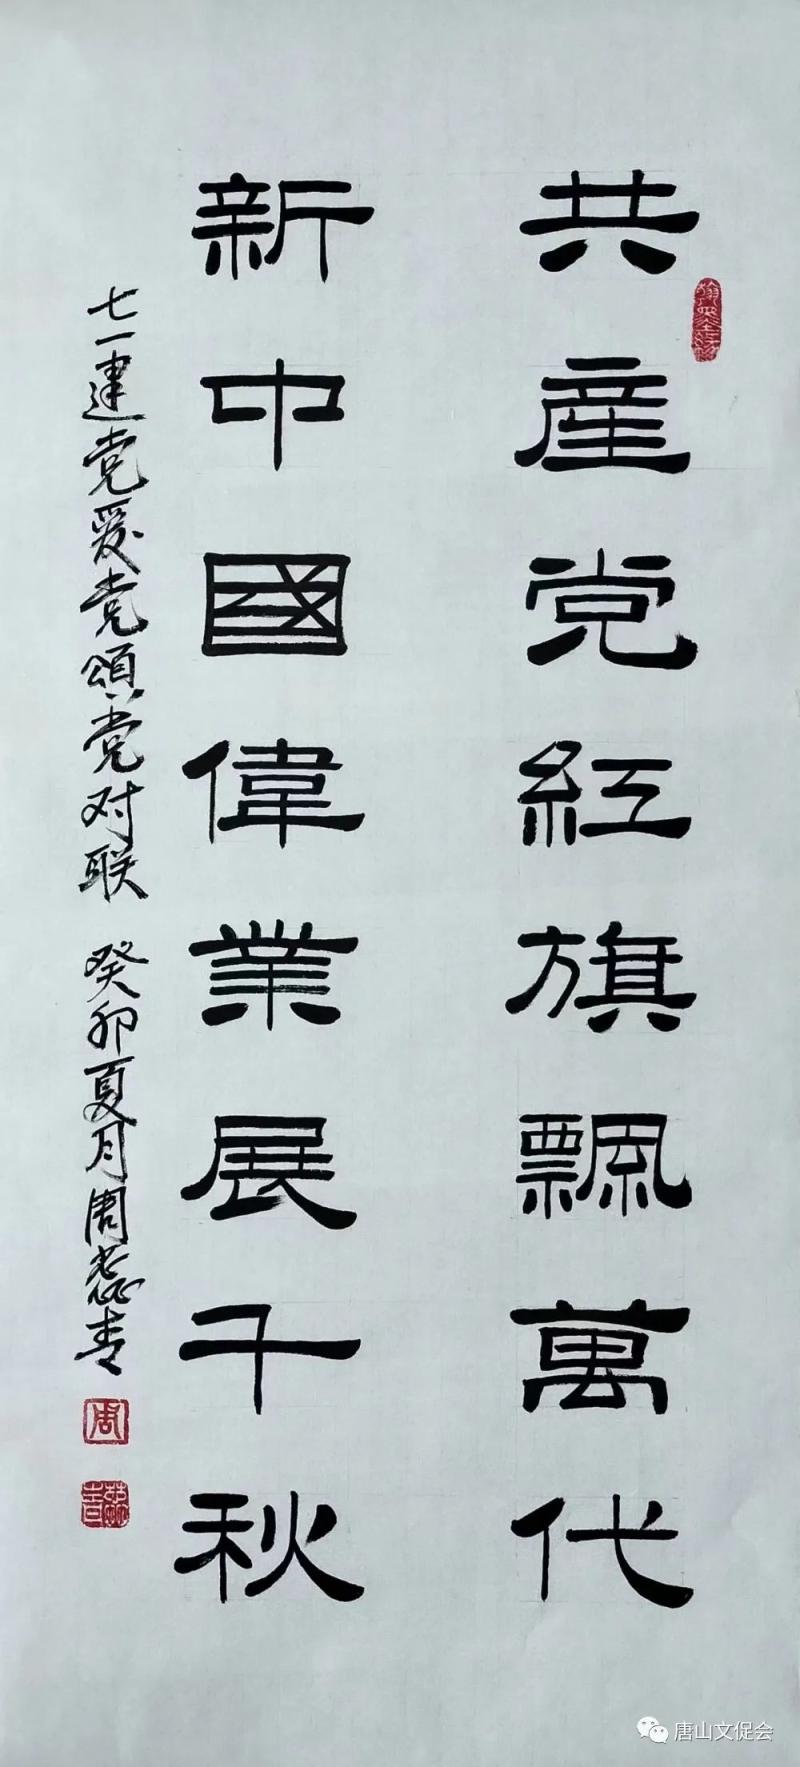 共產党紅旗飄萬代
新中國偉業展千秋
七一建党爱党頌党对联 癸卯夏月周蕊青
周
唐山文促会